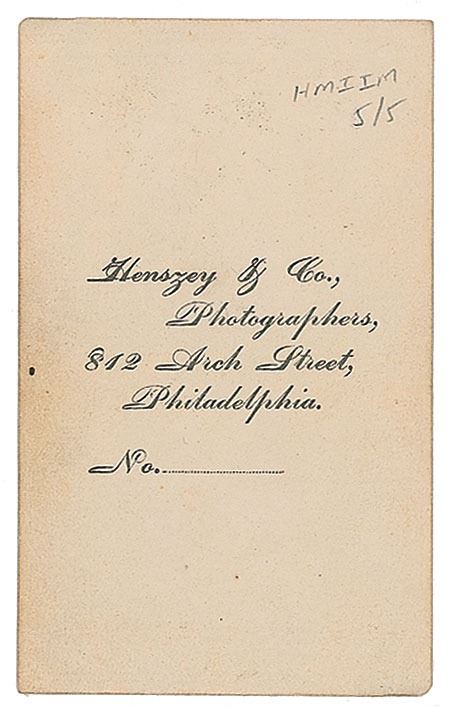 HMIIM
5/5
Henszey & Co.,
Photographers,
812 Arch Street,
Philadelphia.
No.